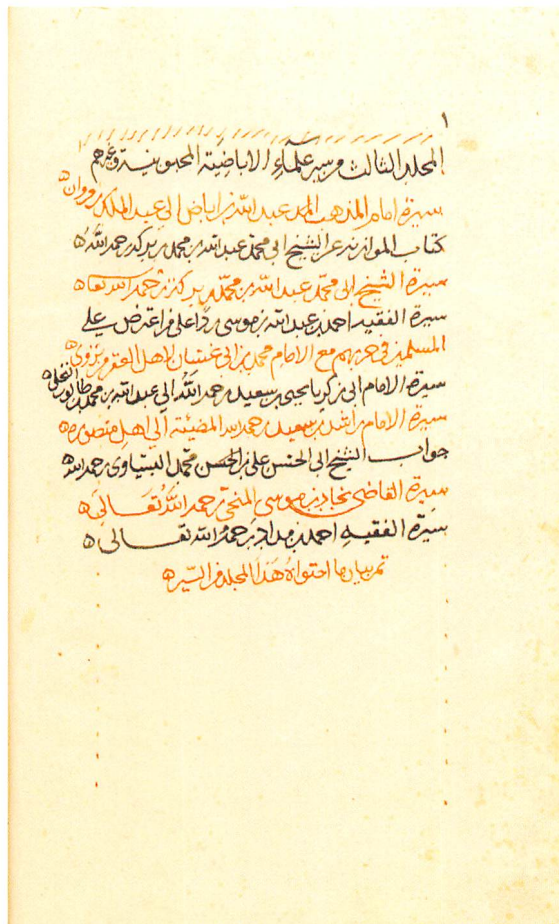 ١
المجلد الثالث من سير علماء الاباضية المحبوبية وغيرهم
سيرة امام المذهب المرد عبد الله بن اباض الى عبد الملك بن مروان
كتاب الموازنة عن الشيخ ابي محمد عبد الله بن محمد بن بركة رحمه الله
سيرة الشيخ ابى محمد عبد الله بن محمد بن بركة رحمه الله تعا
سيرة الفقيه احمد بن عبد الله بن موسى ردا على من اعترض على
المسلمين في حربهم مع الامام محمد بن ابي غسان لاهل العقر من نزوى
سيرة الامام ابى زكريا يحيى بن سعيد رحمه الله الى عبد الله بن محمد بن طالوت النخلي
سيرة الامام راشد بن سعيد رحمه الله المضيئة الى اهل منصورة
جواب الشيخ ابى الحسن على بن الحسن محمد البسياوى رحمه الله
سيرة القاضي نجاد بن موسى المنحي رحمه الله تعالى
سيرة الفقيه احمد بن مداد رحمه الله تعالى
تم بيان ما احتواه هذا المجلد من السير